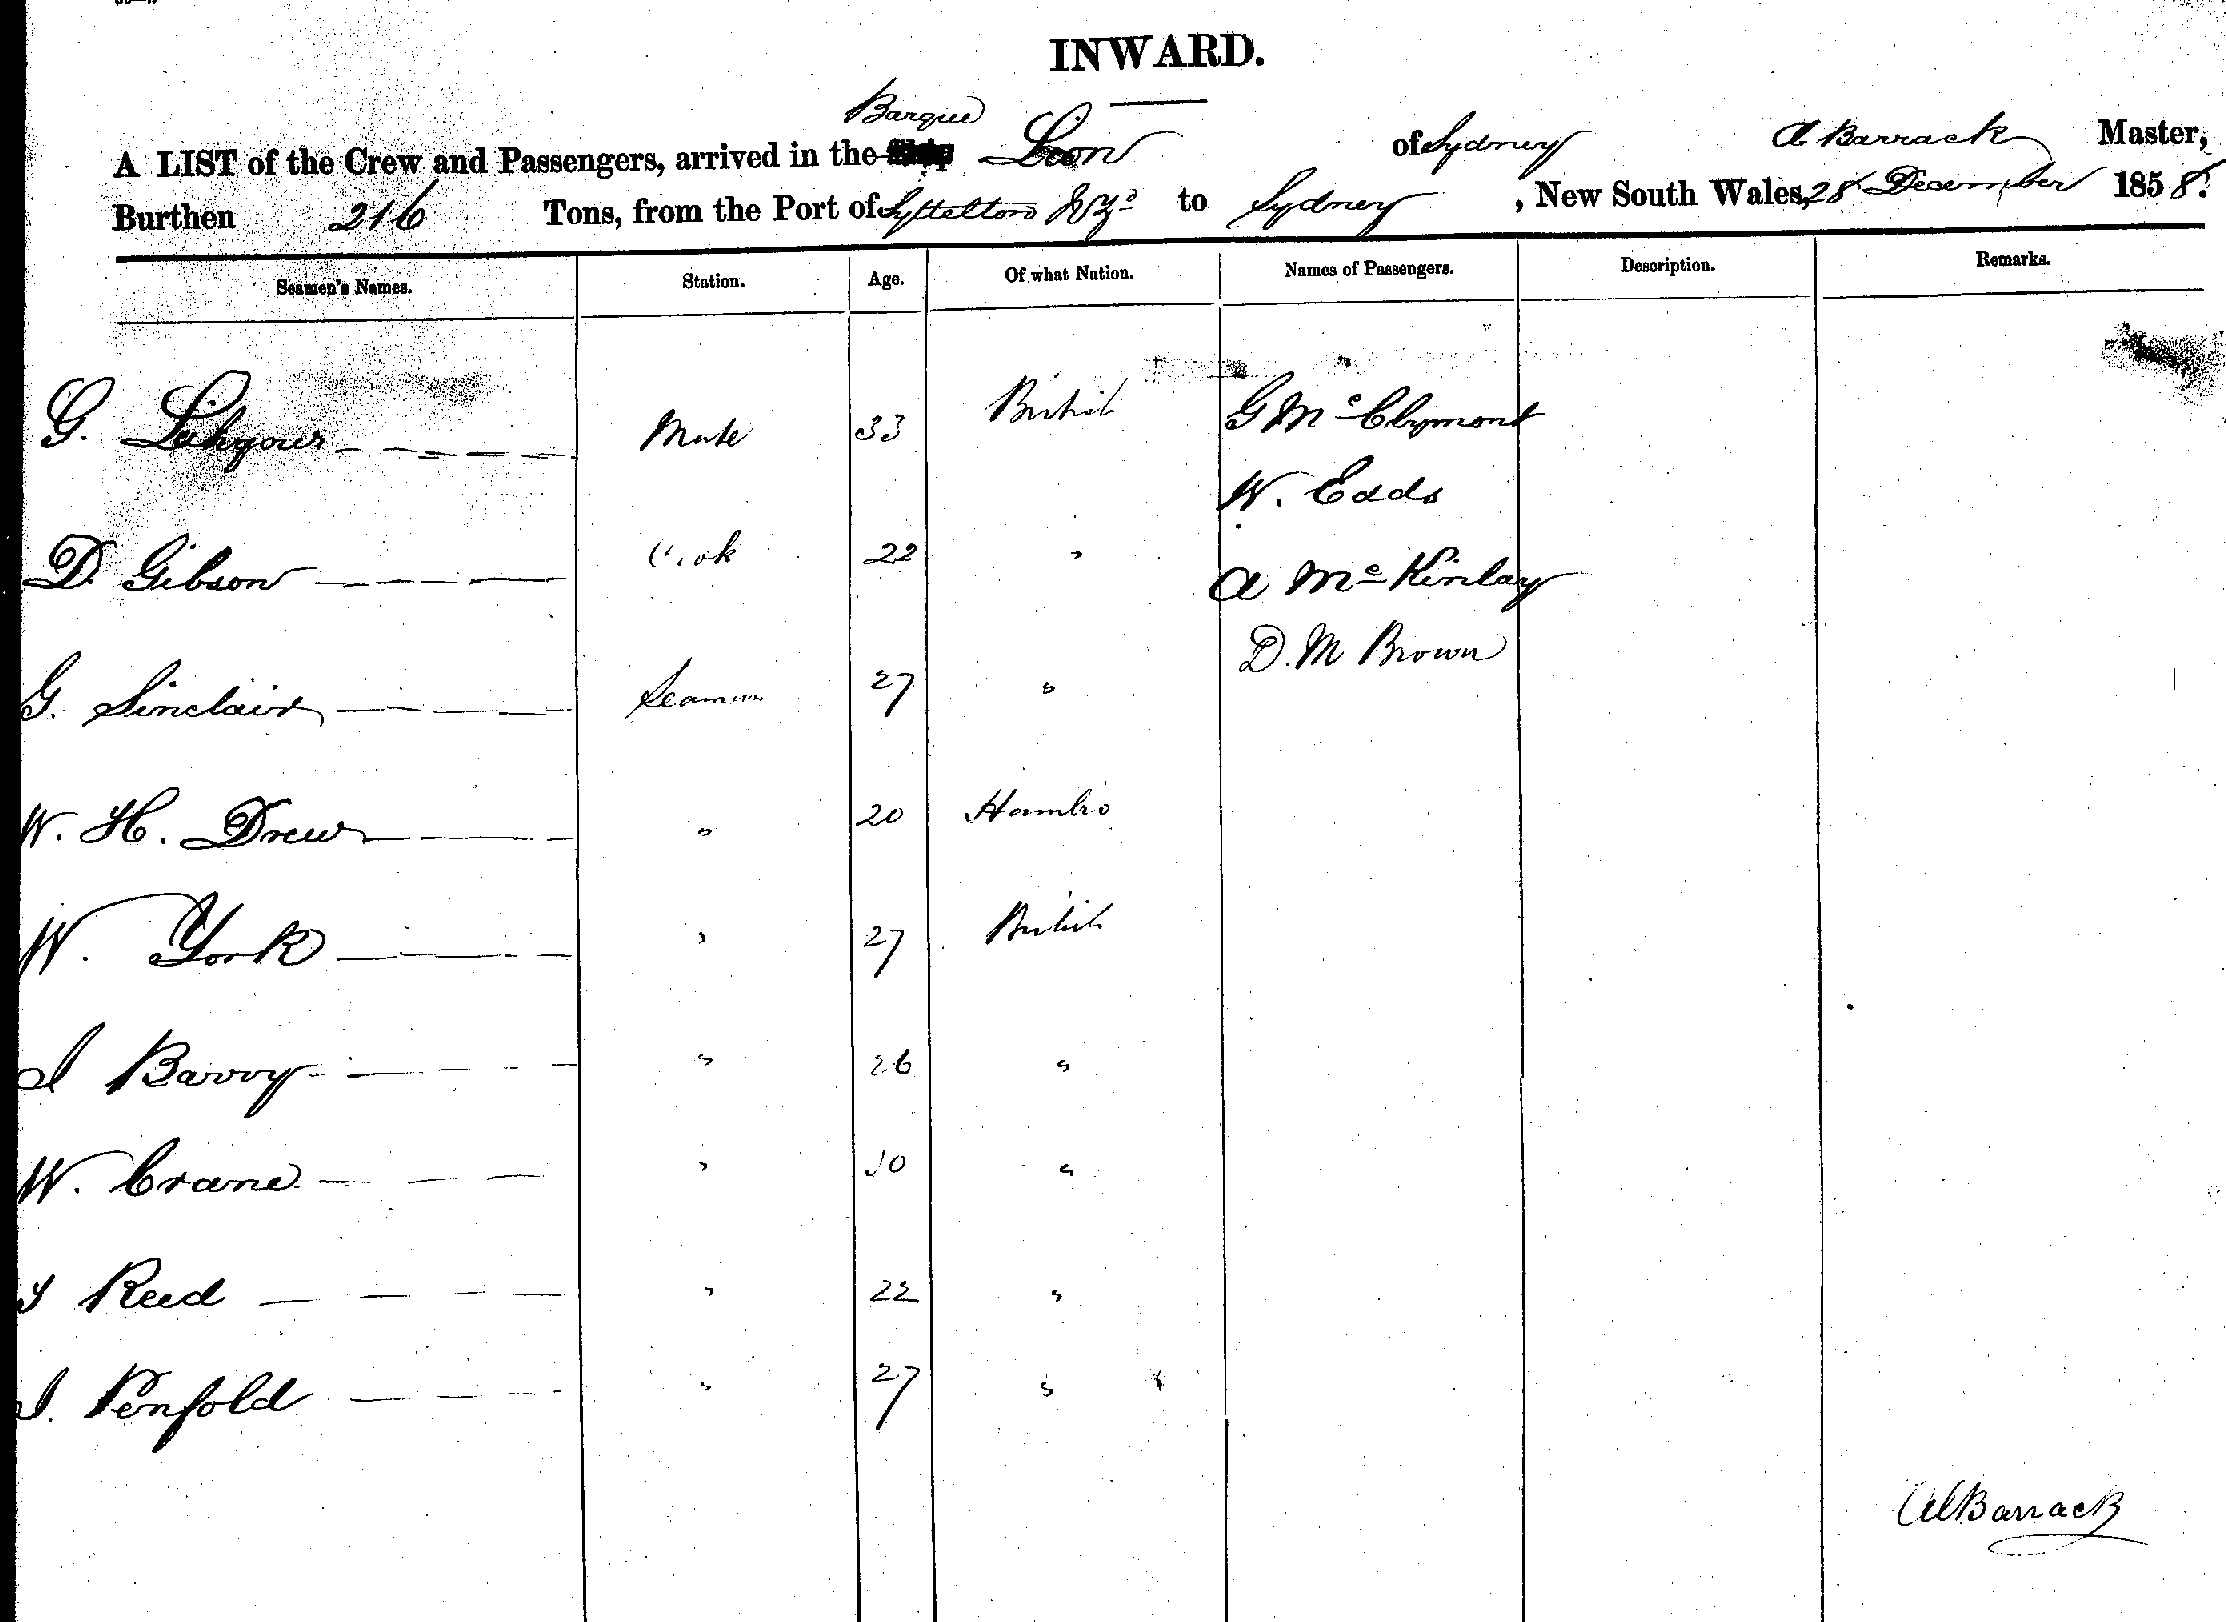 INWARD.
Barque
A LIST of the Crew and Passengers, arrived in the Ship Leon of Sydney A Barrack Master,
Burthen 216 Tons, from the Port of Lyttelton NZd to Sydney, New South Wales, 28 December 1858.
Seamen's Names. Station. Age. Of what Nation. Names of Passengers. Description. Remarks.
G. Mate 33 British G Mc Clymont
W. Edds
D. Gibson Cook 22 " A Mc Kinlay
D. M Brown
G. Sinclair Seaman 27 "
W. H. Drew " 20 Hambro
W. York " 27 British
J Barry " 26 "
W. Crane " 30 "
J Reed " 22 "
J. Penfold " 27 "
A Barrack